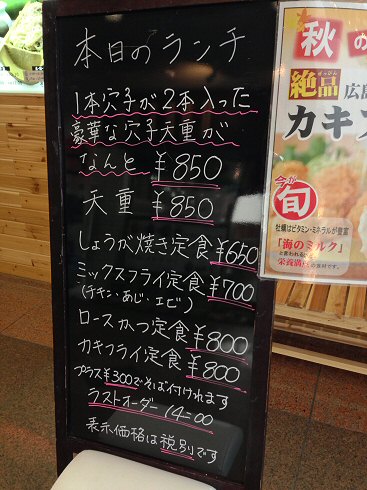 本日のランチ
1本穴子が2本入った
豪華な穴子天重が
なんと ¥850
天重 ¥850
しょうが焼き定食 ¥650
ミックスフライ定食 ¥700
(チキン・あじ・エビ)
ロースかつ定食 ¥800
カキフライ定食 ¥800
プラス¥300でそば付けれます
ラストオーダー 14:00
表示価格は税別です
秋の
絶品 広島
ぜっぴん
カキフ
今が
旬
牡蠣はビタミン・ミネラルが豊富
「海のミルク」
と言われる
栄養満点の食材です。